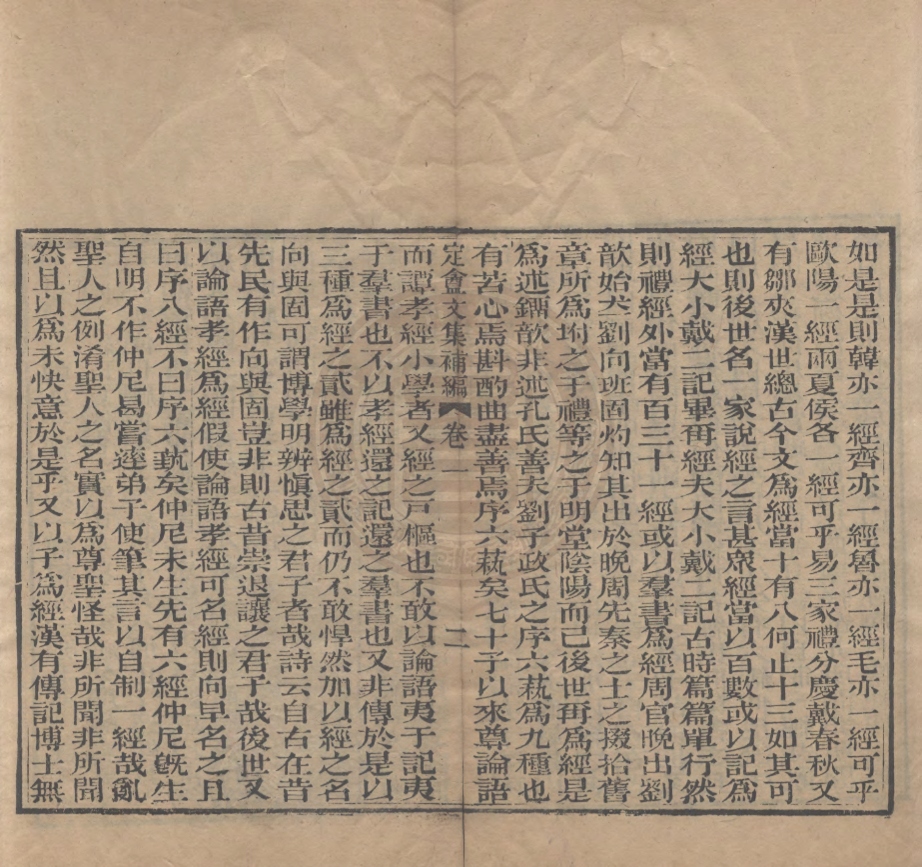 如是是則韓亦一經齊亦一經魯亦一經毛亦一經可乎
歐陽一經兩夏侯各一經可乎易三家禮分慶戴春秋又
有鄒夾漢世總古今文爲經當十有八何止十三如其可
也則後世名一家說經之言甚眾經當以百數或以記爲
經大小戴二記畢稱經夫大小戴二記古時篇篇單行然
則禮經外當有百三十一經或以羣書爲經周官晚出劉
歆始立劉向班固灼知其出於晚周先秦之士之掇拾舊
章所爲坿之于禮等之于明堂陰陽而已後世稱爲經是
爲述劉歆非述孔氏善夫劉子政氏之序六蓺爲九種也
有苦心焉斟酌曲盡善焉序六蓺矣七十子以來尊論語
定盦文集補編 卷一 二
而譚孝經小學者又經之戶樞也不敢以論語夷于記夷
于羣書也不以孝經還之記還之羣書也又非傳於是以
三種爲經之貳雖爲經之貳而仍不敢悍然加以經之名
向與固可謂博學明辨慎思之君子者哉詩云自古在昔
先民有作向與固豈非則古昔崇退讓之君子哉後世又
以論語孝經爲經假使論語孝經可名經則向早名之且
曰序八經不曰序六蓺矣仲尼未生先有六經仲尼旣生
自明不作仲尼曷嘗率弟子使筆其言以自制一經哉亂
聖人之例淆聖人之名實以爲尊聖怪哉非所聞非所聞
然且以爲未快意於是乎又以子爲經漢有傳記博士無